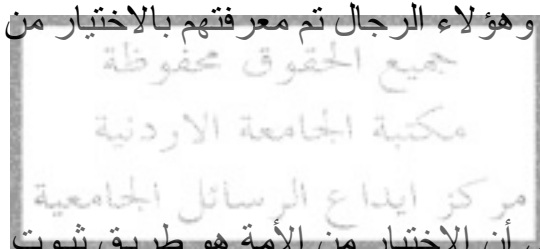 وهؤلاء الرجال تم معرفتهم بالاختيار من
جميع الحقوق محفوظة
مكتبة الجامعة الاردنية
مركز ايداع الرسائل الجامعية
أن الاختيار من الأمة هو طريق ثبوت